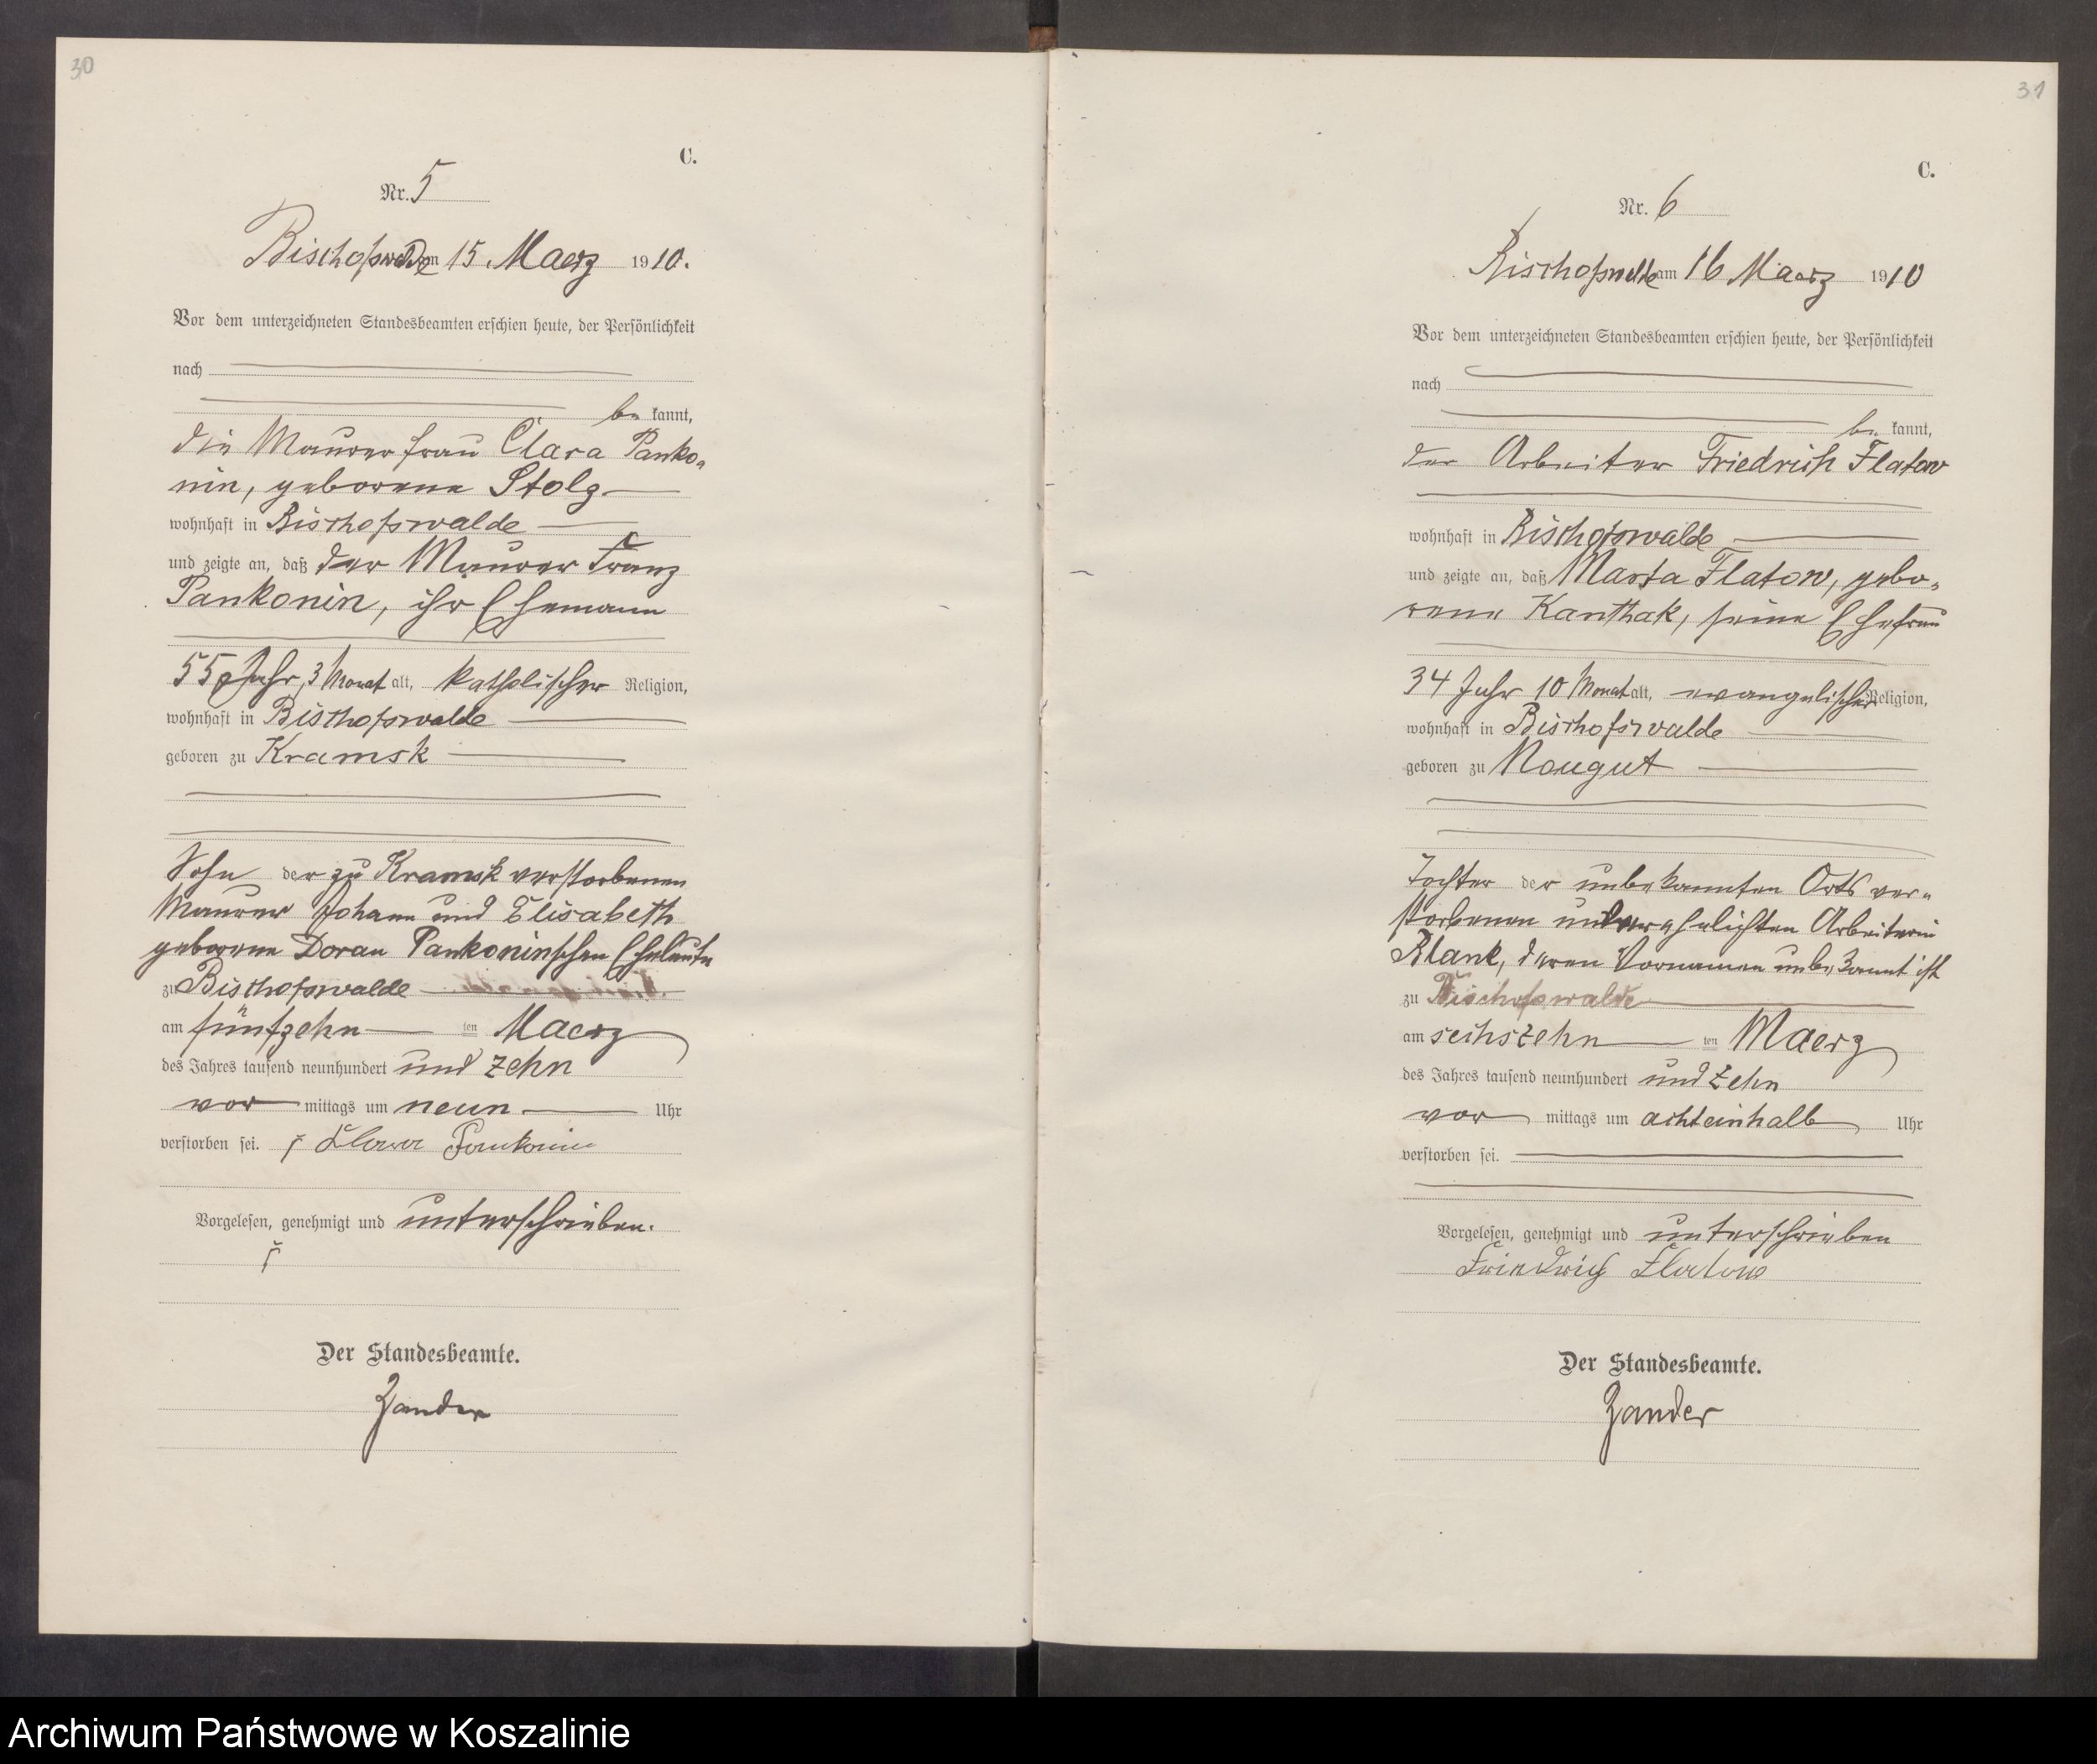 30
C.
Nr. 5
Bischofswalde am 15. Maerz 1910.
Vor dem unterzeichneten Standesbeamten erschien heute, der Persönlichkeit
nach
be kannt,
die Maurerfrau Clara Panko-
nin, geborene Stolz
wohnhaft in Bischofswalde
und zeigte an, daß der Maurer Franz
Pankonin, ihr Ehemann
55 Jahr, 3 Monat alt, katholischer Religion,
wohnhaft in Bischofswalde
geboren zu Kramsk
Sohn der zu Kramsk verstorbenen
Maurer Johann und Elisabeth
geborene Doran Pankoninschen Eheleute
zu Bischofswalde
am fünfzehn ten Maerz
des Jahres tausend neunhundert und zehn
vor mittags um neun Uhr
verstorben sei. Clara Pankonin
Vorgelesen, genehmigt und unterschrieben.
Der Standesbeamte.
Zander
31
C.
Nr. 6
Bischofswalde am 16 Maerz 1910
Vor dem unterzeichneten Standesbeamten erschien heute, der Persönlichkeit
nach
be kannt,
der Arbeiter Friedrich Flatow
wohnhaft in Bischofswalde
und zeigte an, daß Marta Flatow, gebo-
rene Kanthak, seine Ehefrau
34 Jahr 10 Monat alt, evangelischer Religion,
wohnhaft in Bischofswalde
geboren zu Neugut
Tochter der unbekannten Orts ver-
storbenen unverehelichten Arbeiterin
Blank, deren Vornamen unbekannt ist
zu Bischofswalde
am sechszehn ten Maerz
des Jahres tausend neunhundert und zehn
vor mittags um achteinhalb Uhr
verstorben sei.
Vorgelesen, genehmigt und unterschrieben
Friedrich Flatow
Der Standesbeamte.
Zander
Archiwum Państwowe w Koszalinie